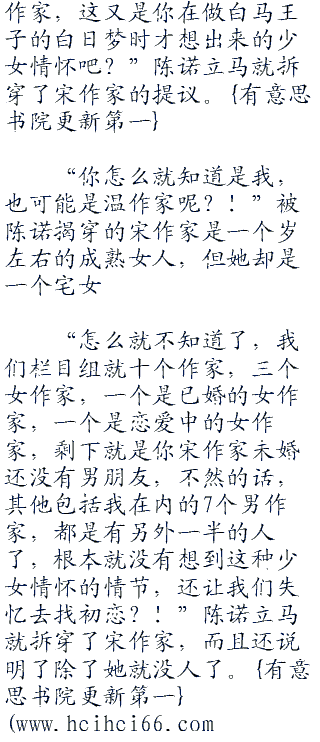 作家，这又是你在做白马王
子的白日梦时才想出来的少
女情怀吧？”陈诺立马就拆
穿了宋作家的提议。{有意思
书院更新第一}
“你怎么就知道是我，
也可能是温作家呢？！”被
陈诺揭穿的宋作家是一个岁
左右的成熟女人，但她却是
一个宅女
“怎么就不知道了，我
们栏目组就十个作家，三个
女作家，一个是已婚的女作
家，一个是恋爱中的女作
家，剩下就是你宋作家未婚
还没有男朋友，不然的话，
其他包括我在内的7个男作
家，都是有另外一半的人
了，根本就没有想到这种少
女情怀的情节，还让我们失
忆去找初恋？！”陈诺立马
就拆穿了宋作家，而且还说
明了除了她就没人了。{有意
思书院更新第一}
(www.hcihci66.com